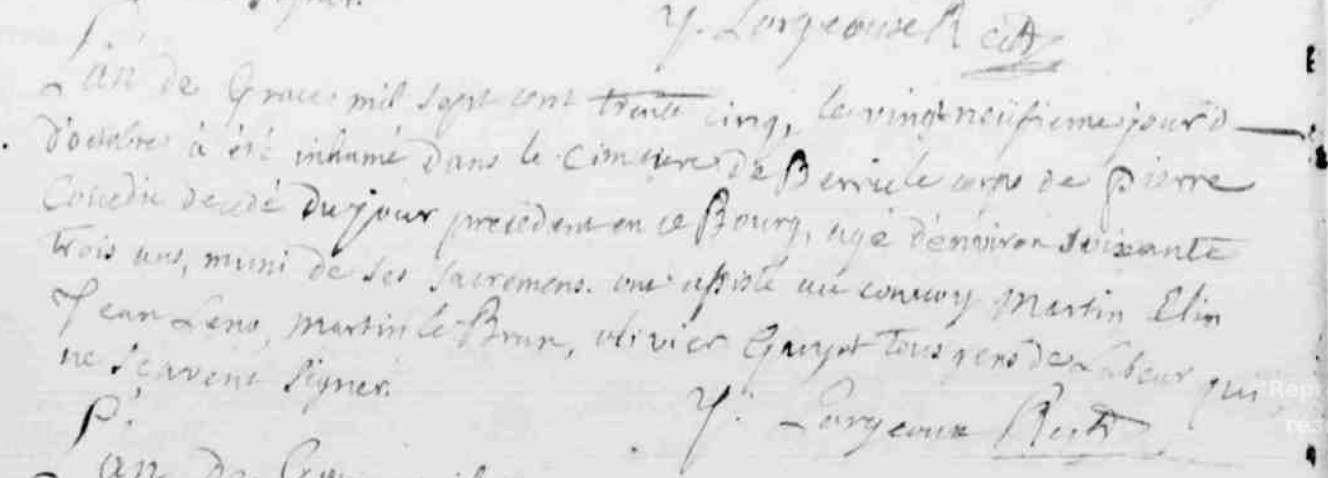 Signer.
Y. Lorgeoux Rect
L'an de Grace mil sept cent trente cinq, le vingt neufieme jour d
d'octobre à été inhumé dans le cimetiere de Berric le corps de Pierre
decedé du jour precedent en ce Bourg, agé d'environ soixante
trois ans, muni de ses sacremens. ont assisté au convoy Martin Elin
Jean Leno, Martin le Brun, olivier Guyot tous gens de Labeur qui
ne sçavent signer.
Y. Lorgeoux Rect
P.
an de